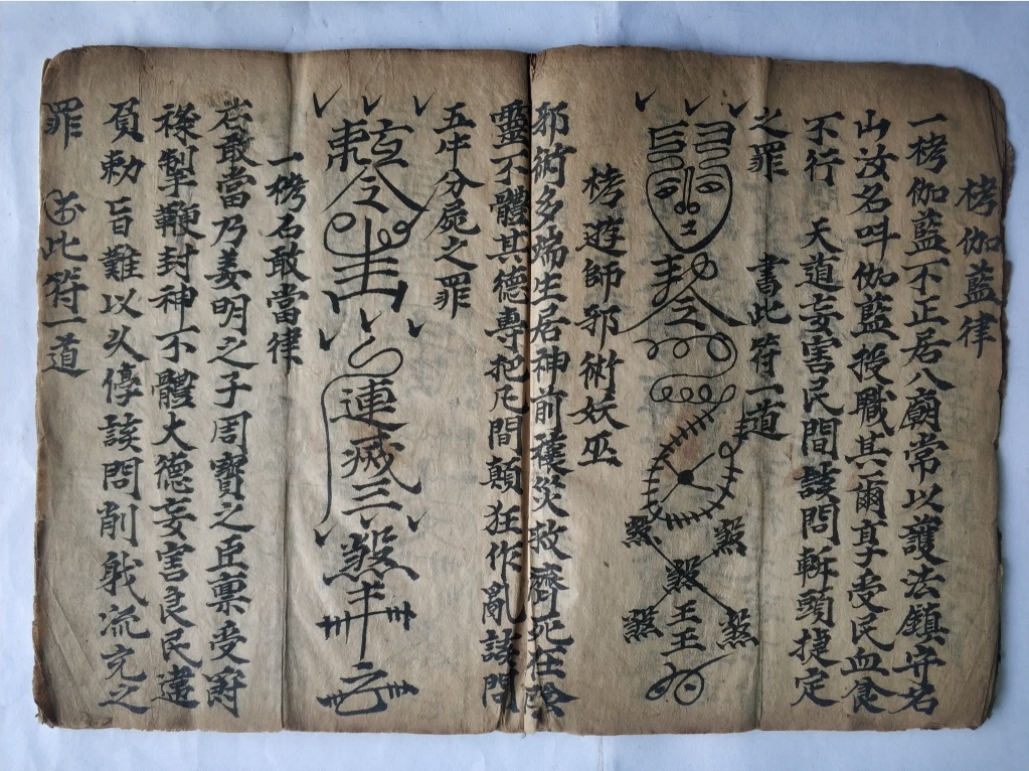 栲伽藍律
一栲伽藍不正居八廟常以護法鎮守名
山汝名叫伽藍授職其爾享受民血食
不行 天道妄害民間該問斬頭捷定
之罪 書此符一道
煞 煞
煞
煞 王 煞
王
栲遊師邪術妖巫
邪術多端生居神前禳災救濟死在陰
靈不體其德專把民間顛狂作亂該問
五牢分屍之罪
連滅三煞
一栲石敢當律
若敢當乃姜明之子周寶之臣稟受
祿掣鞭封神不體大德妄害良民違
負勅旨難以久停該問削戝流充之
罪 此符一道